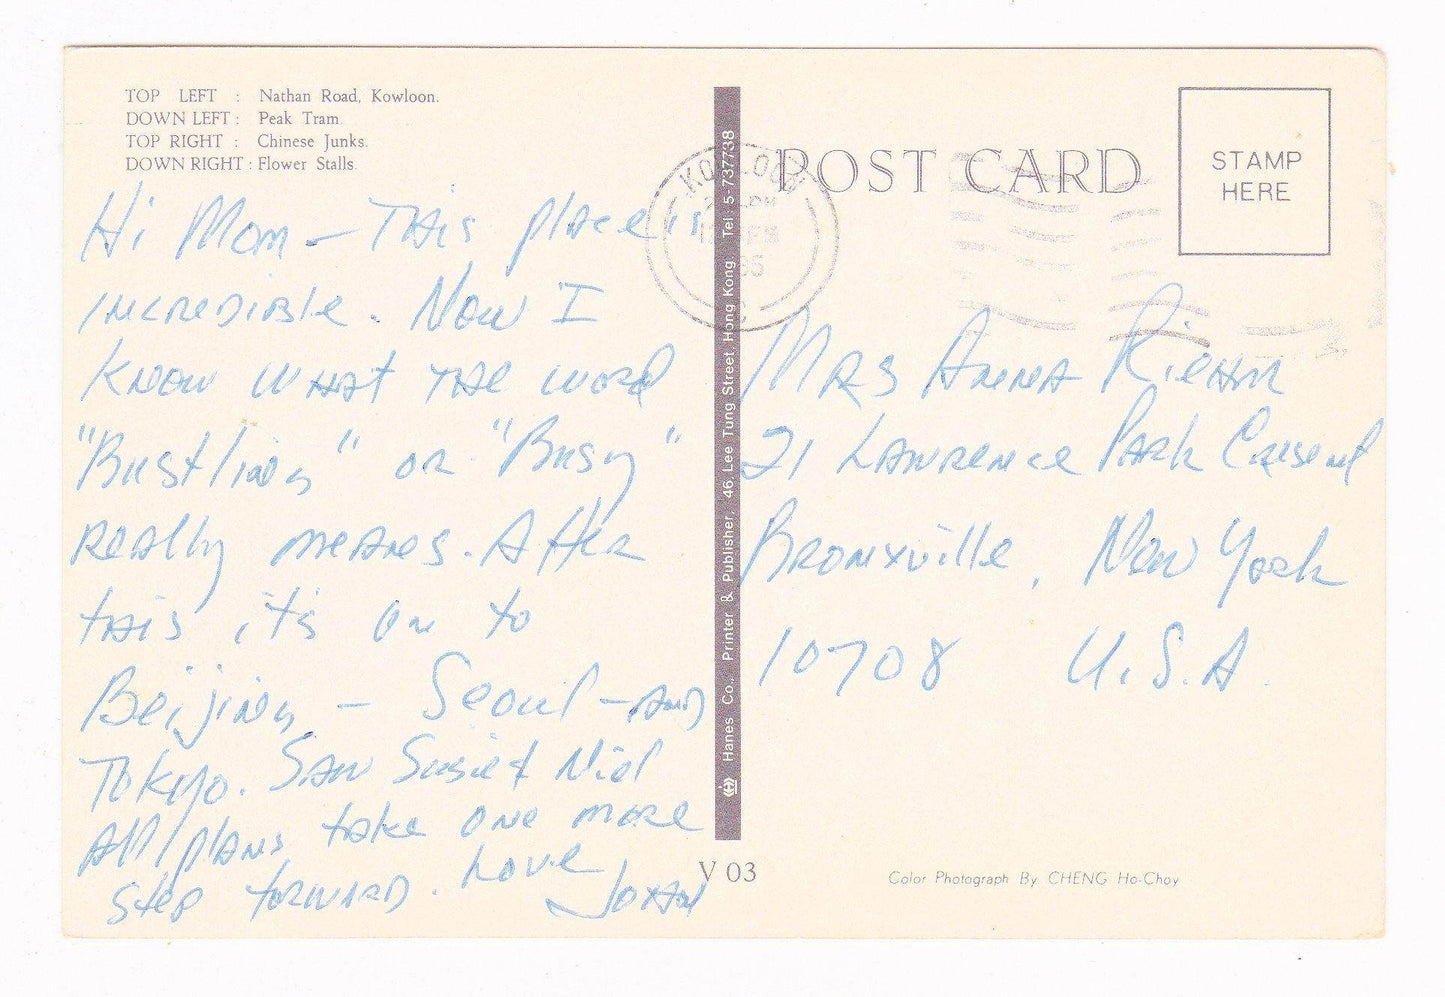 TOP LEFT : Nathan Road, Kowloon.
DOWN LEFT : Peak Tram.
TOP RIGHT : Chinese Junks.
DOWN RIGHT : Flower Stalls.
Hi Mom — This place is
incredible. Now I
know what the word
"Bustling" or "Busy"
really means. After
this it's on to
Beijing — Seoul — and
Tokyo. Saw Susie &
All plans take one more
step forward. Love
Hanes Co., Printer & Publisher, 46, Lee Tung Street, Hong Kong. Tel: 5-737738
V 03
KOWLOON
POST CARD
STAMP
HERE
Mrs Anna
21 Lawrence Park Cresent
Bronxville, New York
10708 U.S.A.
Color Photograph By CHENG Ho-Choy